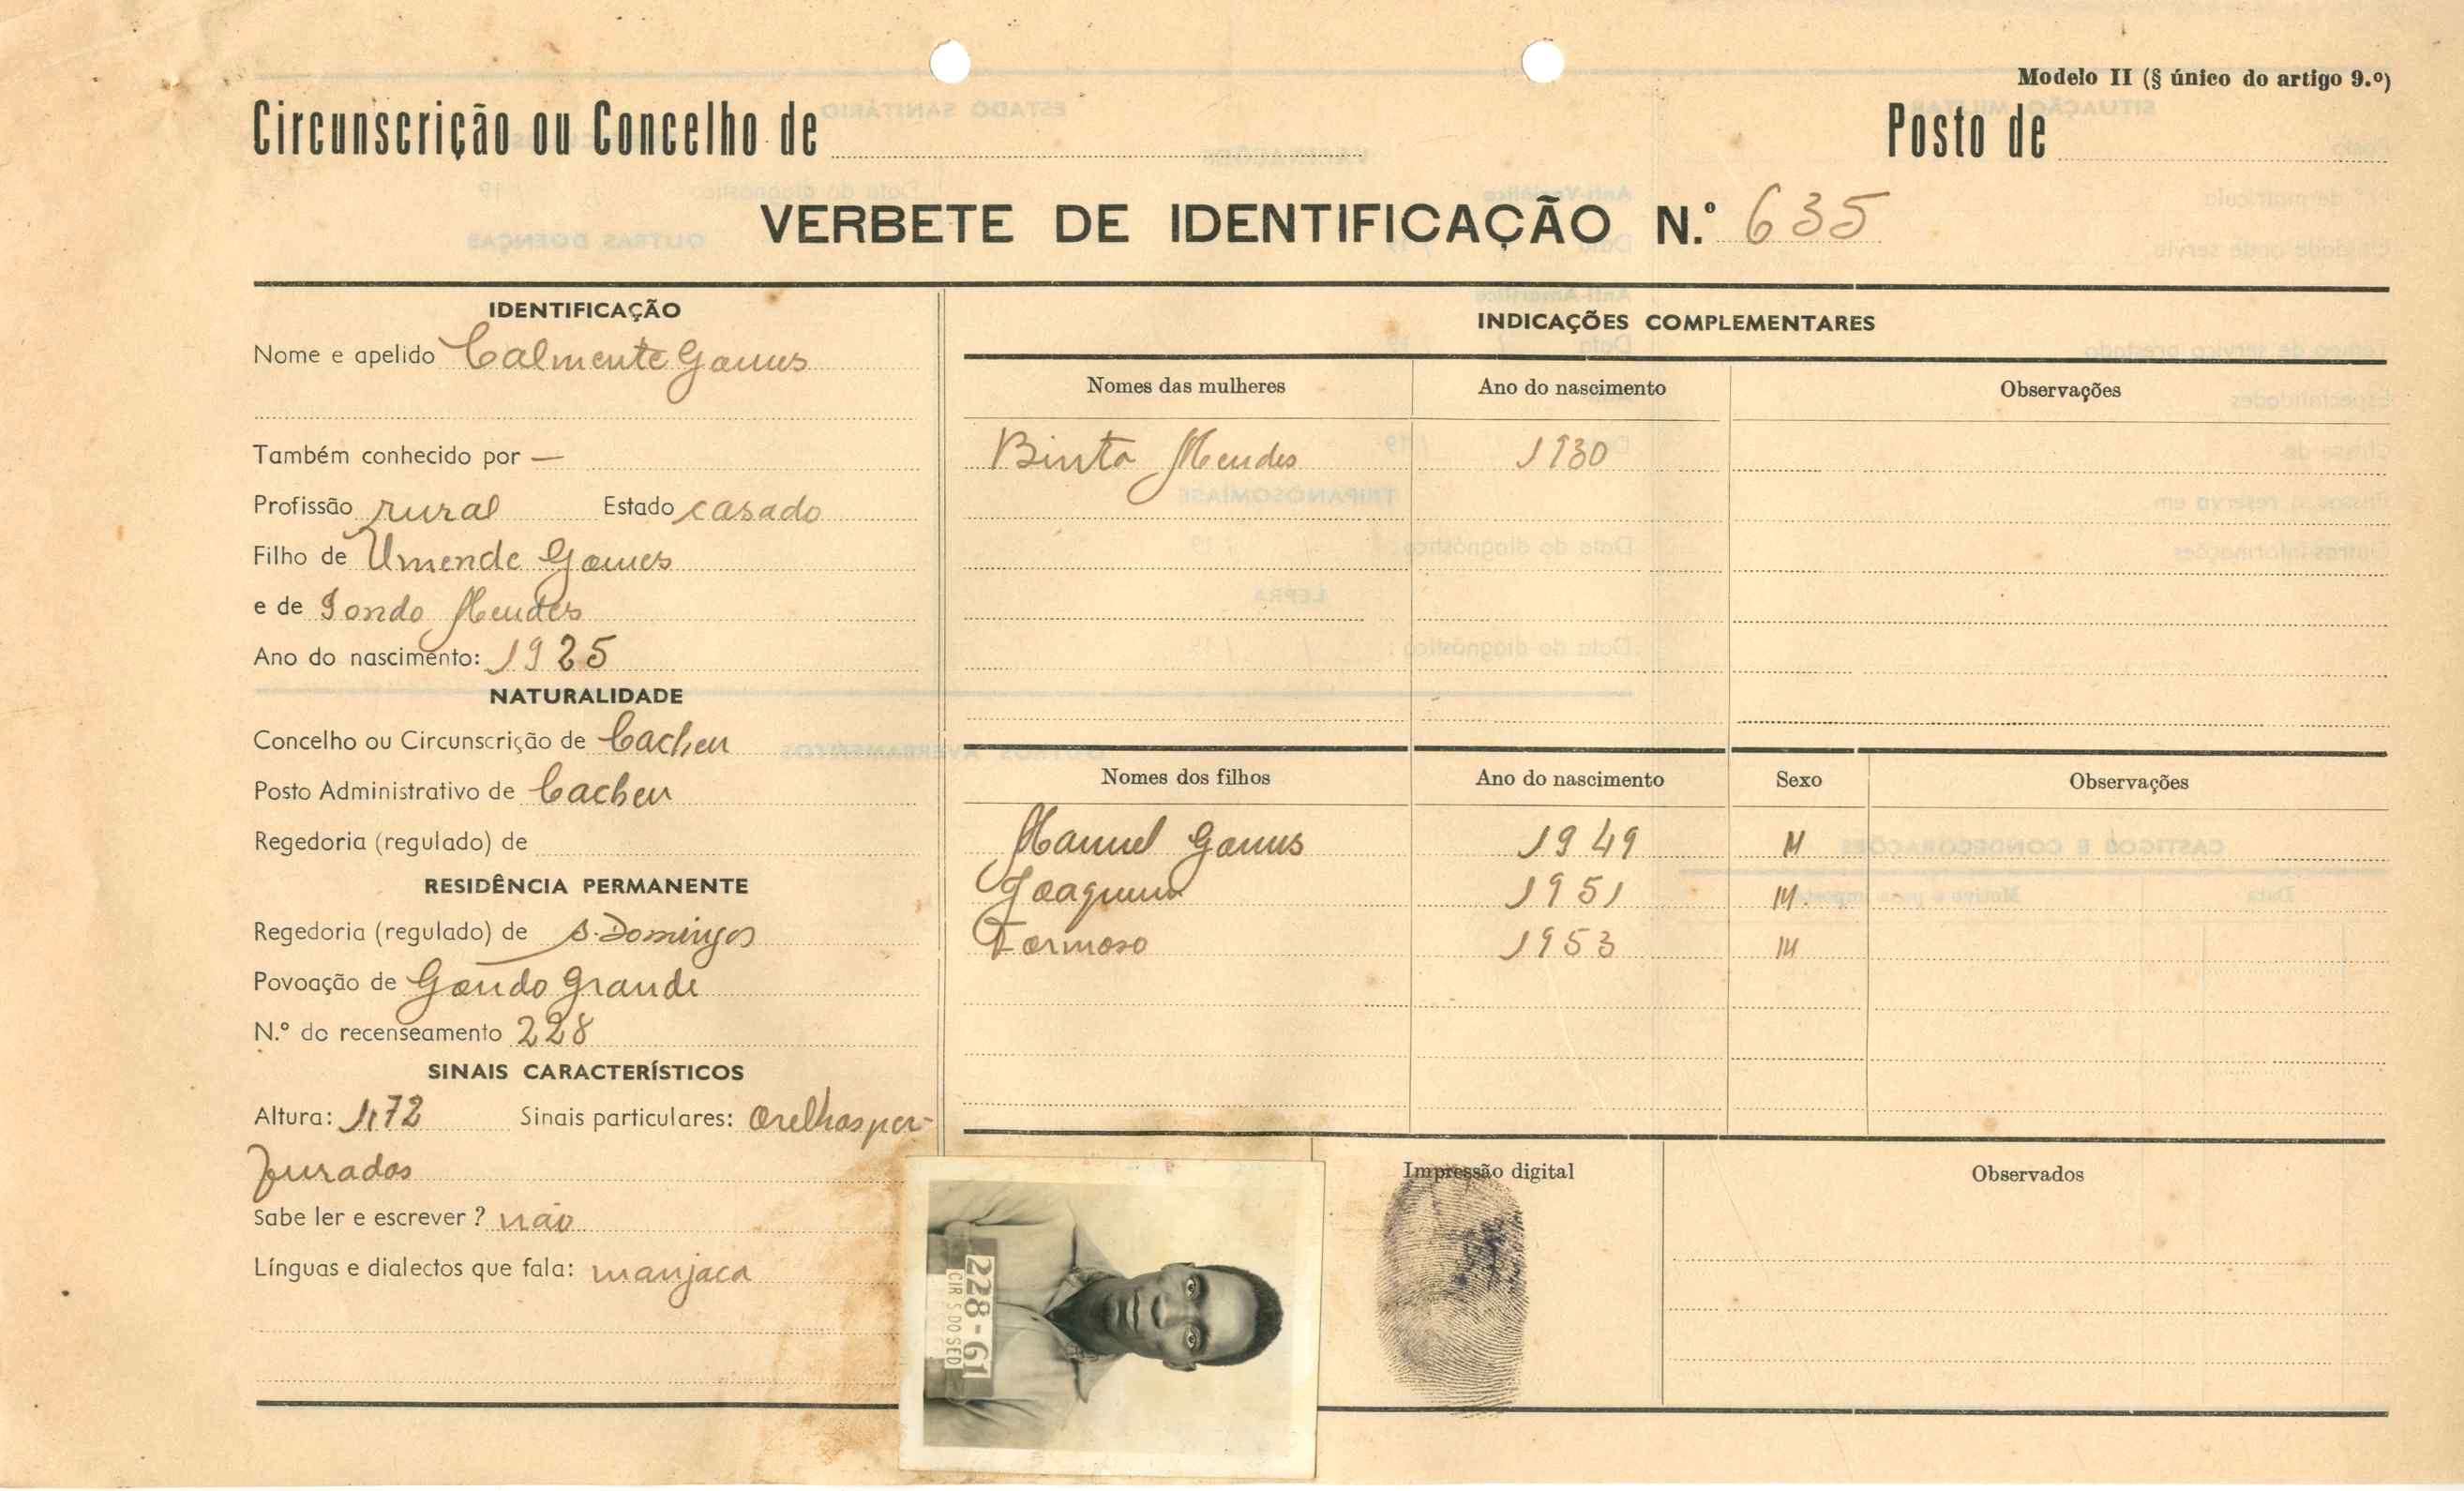 Modelo II (§ único do artigo 9.º)
Circunscrição ou Concelho de
Posto de
VERBETE DE IDENTIFICAÇÃO N.º 635
IDENTIFICAÇÃO
Nome e apelido Calmente Gomes
Também conhecido por —
Profissão rural Estado casado
Filho de Umende Gomes
e de Mendes
Ano do nascimento: 1925
NATURALIDADE
Concelho ou Circunscrição de Cacheu
Posto Administrativo de Cacheu
Regedoria (regulado) de
RESIDÊNCIA PERMANENTE
Regedoria (regulado) de S. Domingos
Povoação de Grande
N.º do recenseamento 228
SINAIS CARACTERÍSTICOS
Altura: 1,72 Sinais particulares: Orelhas per-
furadas
Sabe ler e escrever? não
Línguas e dialectos que fala: manjaca
INDICAÇÕES COMPLEMENTARES
Nomes das mulheres Ano do nascimento Observações
Binta Mendes 1930
Nomes dos filhos Ano do nascimento Sexo Observações
Manuel Gomes 1949 M
Joaquim 1951 M.
Formoso 1953 M
228-61
CIR S DO SED
Impressão digital
Observados